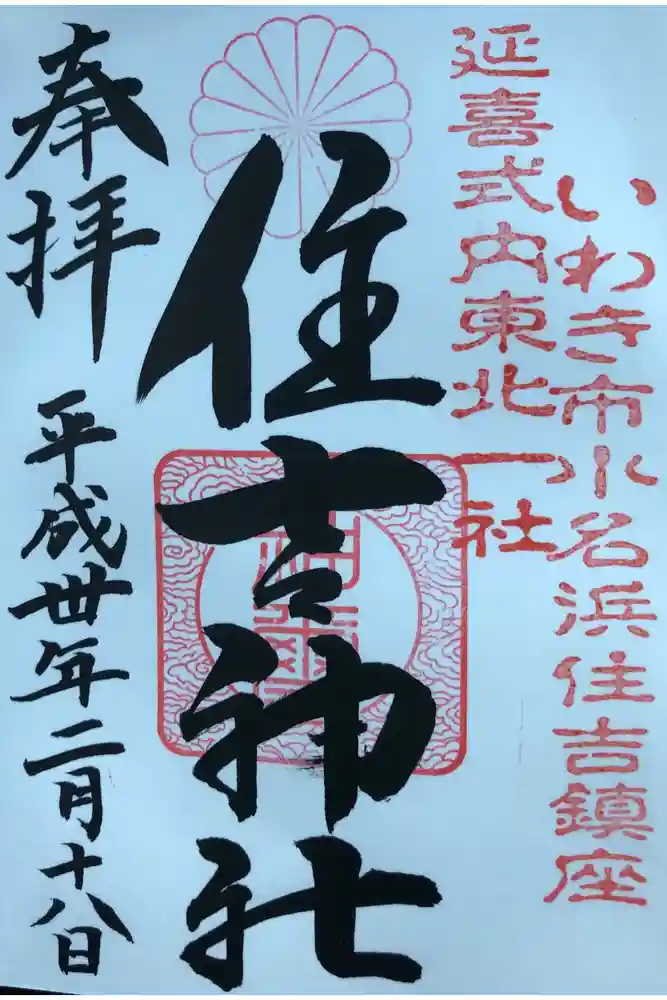 いわき市小名浜住吉鎮座
延喜式内東北一社
住吉神社
奉拝
平成卅年二月十八日